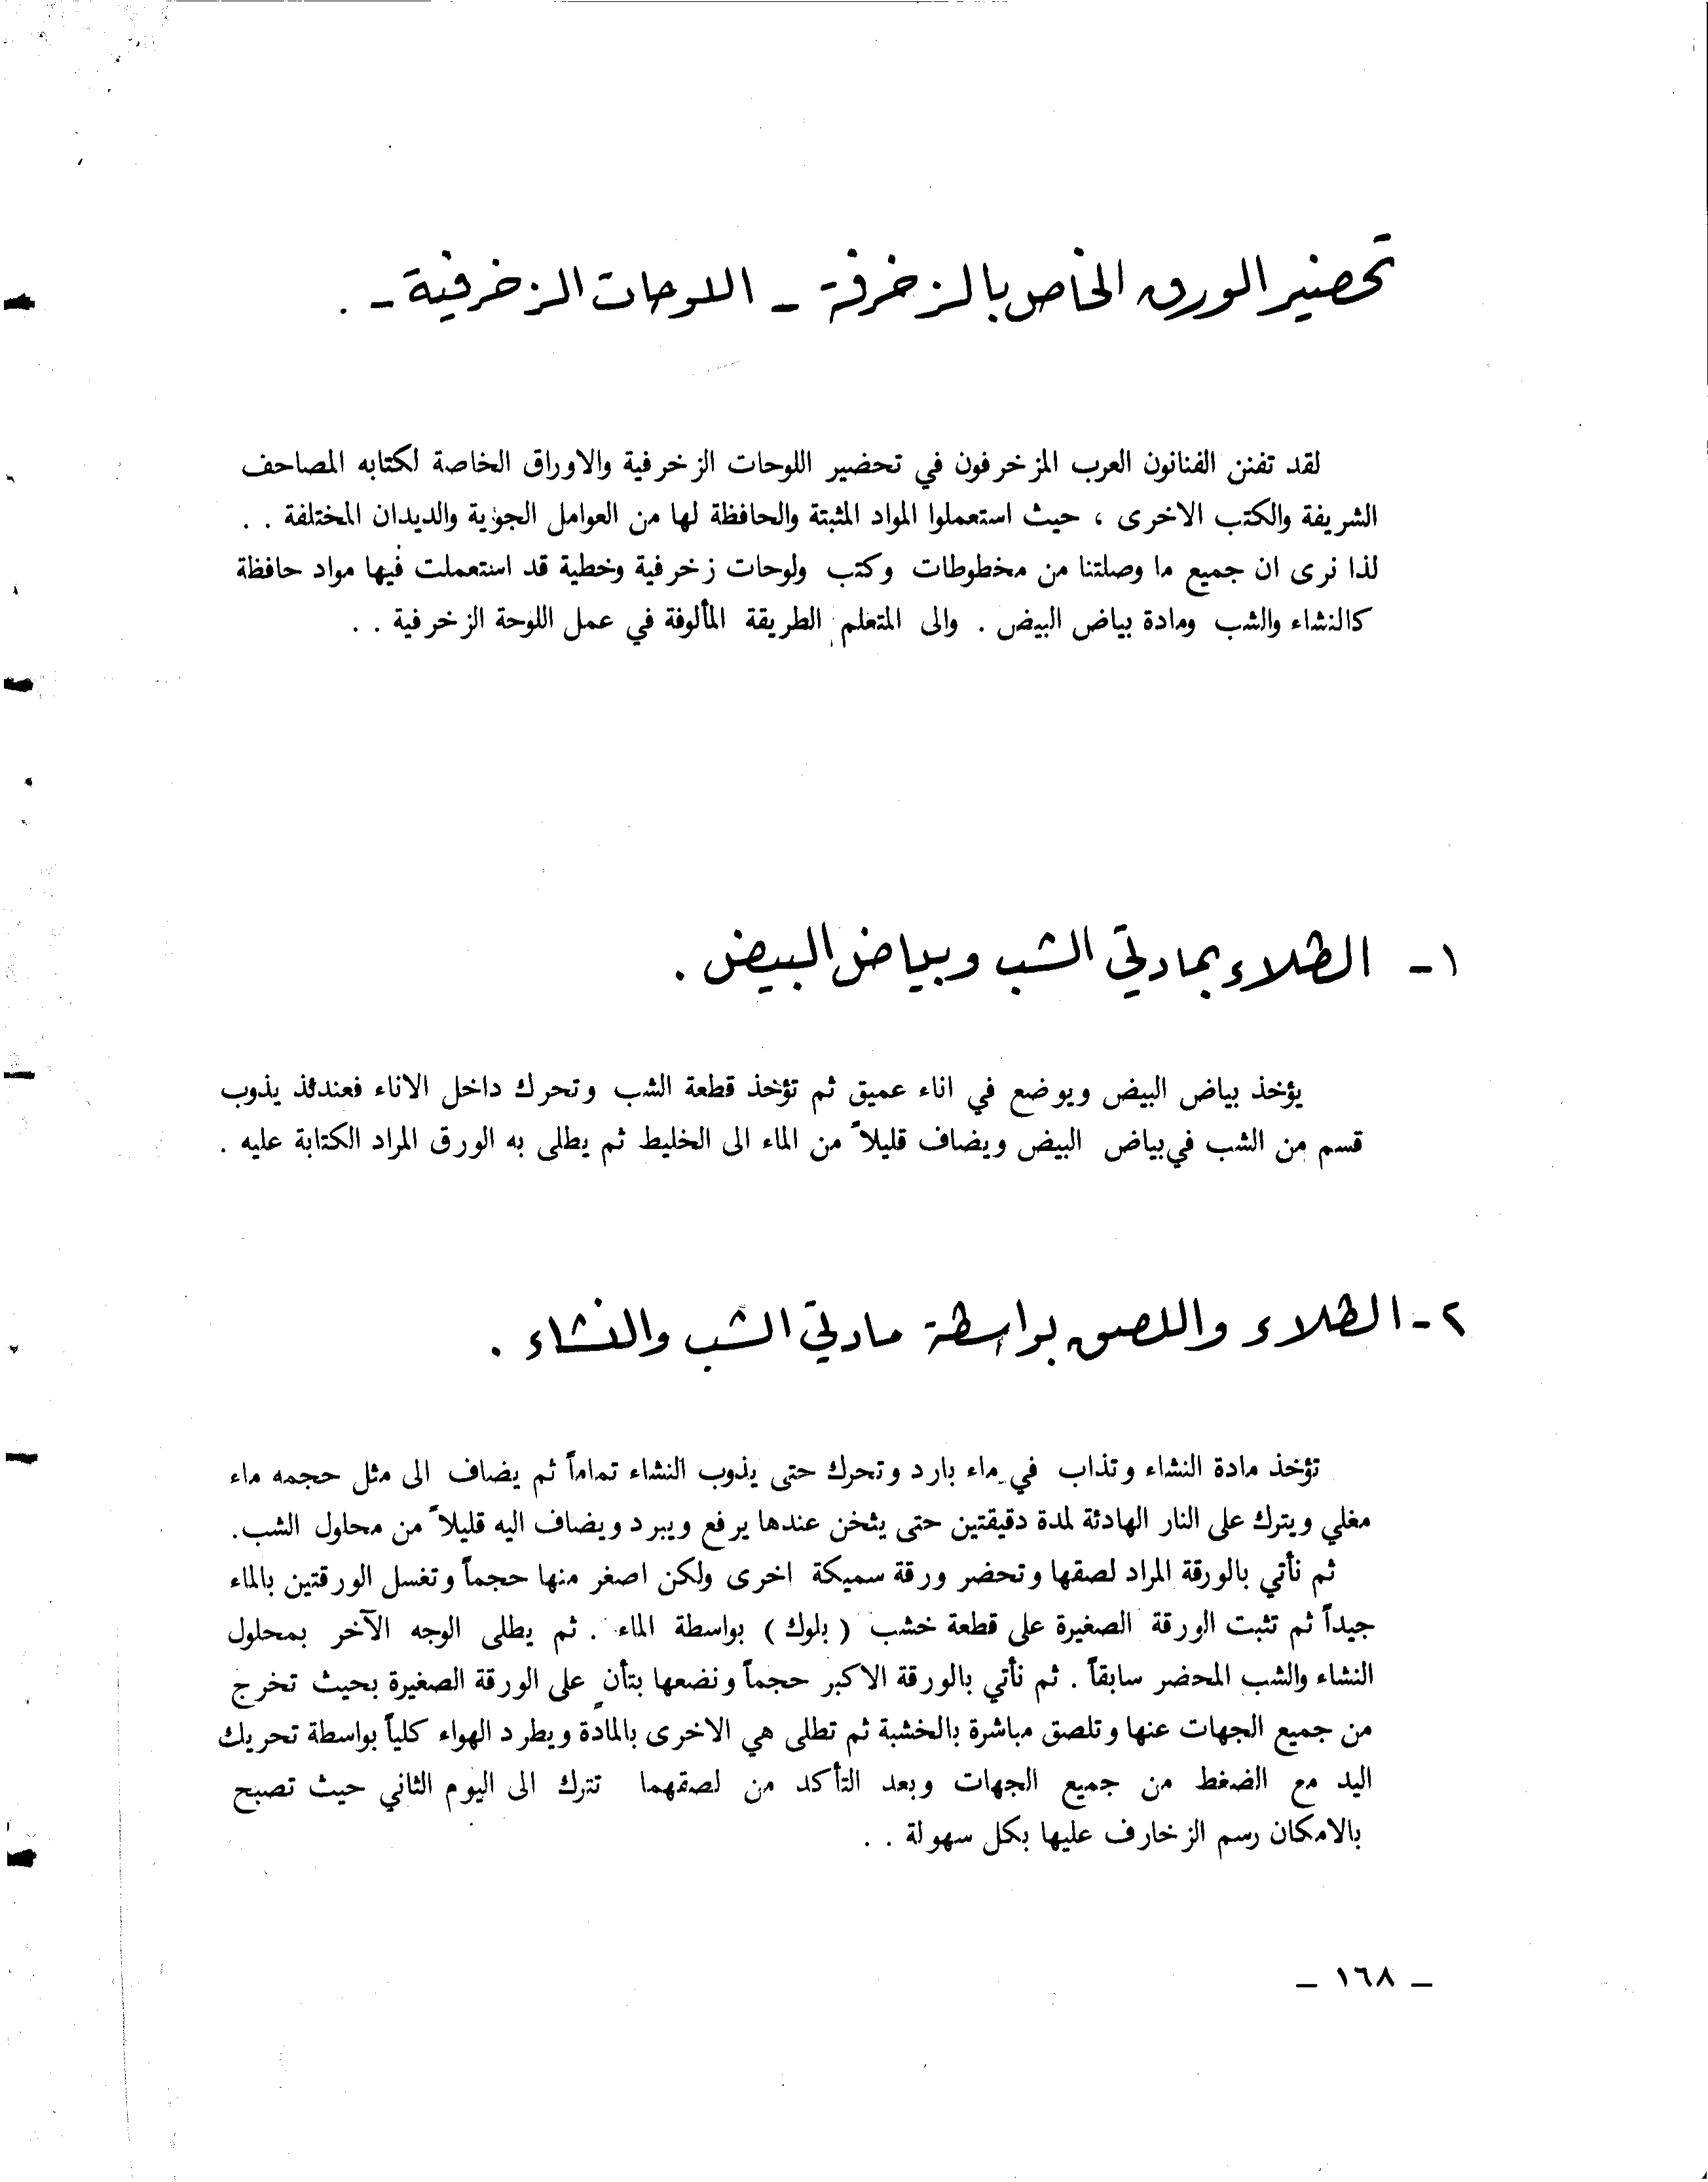 تحضير الورق الخاص بالزخرفة ـ اللوحات الزخرفية ـ .
لقد تفنن الفنانون العرب المزخرفون في تحضير اللوحات الزخرفية والاوراق الخاصة لكتابه المصاحف
الشريفة والكتب الاخرى ، حيث استعملوا المواد المثبتة والحافظة لها من العوامل الجوية والديدان المختلفة . .
لذا نرى ان جميع ما وصلتنا من مخطوطات وكتب ولوحات زخرفية وخطية قد استعملت فيها مواد حافظة
كالنشاء والشب ومادة بياض البيض . والى المتعلم الطريقة المألوفة في عمل اللوحة الزخرفية . .
١ ـ الطلاء بمادتي الشب وبياض البيض .
يؤخذ بياض البيض ويوضع في اناء عميق ثم تؤخذ قطعة الشب وتحرك داخل الاناء فعندئذ يذوب
قسم من الشب في بياض البيض ويضاف قليلاً من الماء الى الخليط ثم يطلى به الورق المراد الكتابة عليه .
٢ ـ الطلاء واللصق بواسطة مادتي الشب والنشاء .
تؤخذ مادة النشاء وتذاب في ماء بارد وتحرك حتى يذوب النشاء تماماً ثم يضاف الى مثل حجمه ماء
مغلي ويترك على النار الهادئة لمدة دقيقتين حتى يثخن عندها يرفع ويبرد ويضاف اليه قليلاً من محلول الشب.
ثم نأتي بالورقة المراد لصقها وتحضر ورقة سميكة اخرى ولكن اصغر منها حجماً وتغسل الورقتين بالماء
جيداً ثم تثبت الورقة الصغيرة على قطعة خشب ( بلوك ) بواسطة الماء . ثم يطلى الوجه الآخر بمحلول
النشاء والشب المحضر سابقاً . ثم نأتي بالورقة الاكبر حجماً ونضعها بتأنٍ على الورقة الصغيرة بحيث تخرج
من جميع الجهات عنها وتلصق مباشرة بالخشبة ثم تطلى هي الاخرى بالمادة ويطرد الهواء كلياً بواسطة تحريك
اليد مع الضغط من جميع الجهات وبعد التأكد من لصقهما تترك الى اليوم الثاني حيث تصبح
بالامكان رسم الزخارف عليها بكل سهولة . .
ـ ١٦٨ ـ